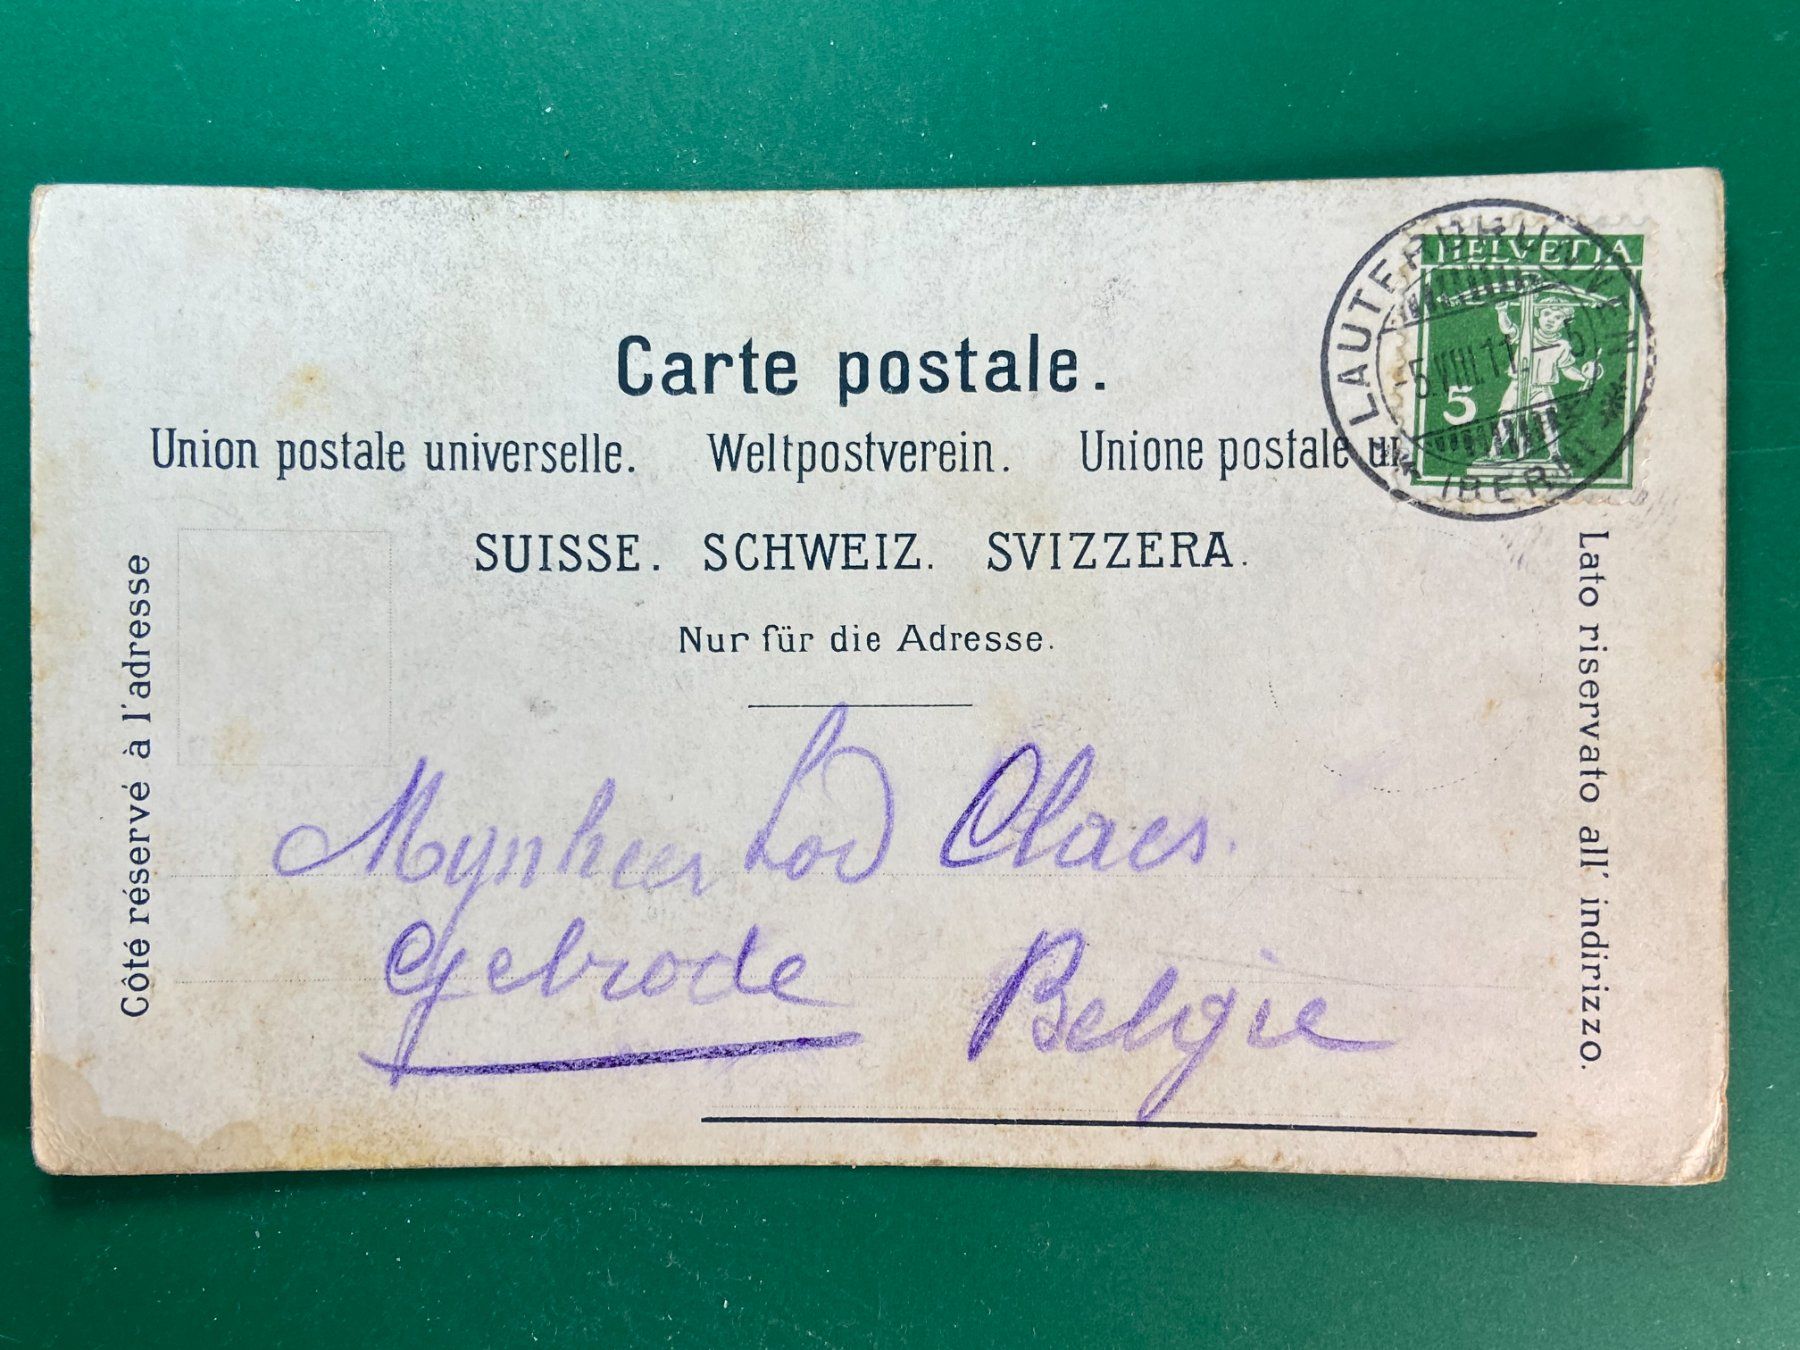 Carte postale.
Union postale universelle. Weltpostverein. Unione postale un
SUISSE. SCHWEIZ. SVIZZERA.
Nur für die Adresse.
Côté réservé à l'adresse
Lato riservato all' indirizzo.
HELVETIA
5
LAUTERBRUNNEN
-5.VIII.11. 5
(BERN)
Mynheer Lod Claes.
Gelrode Belgie